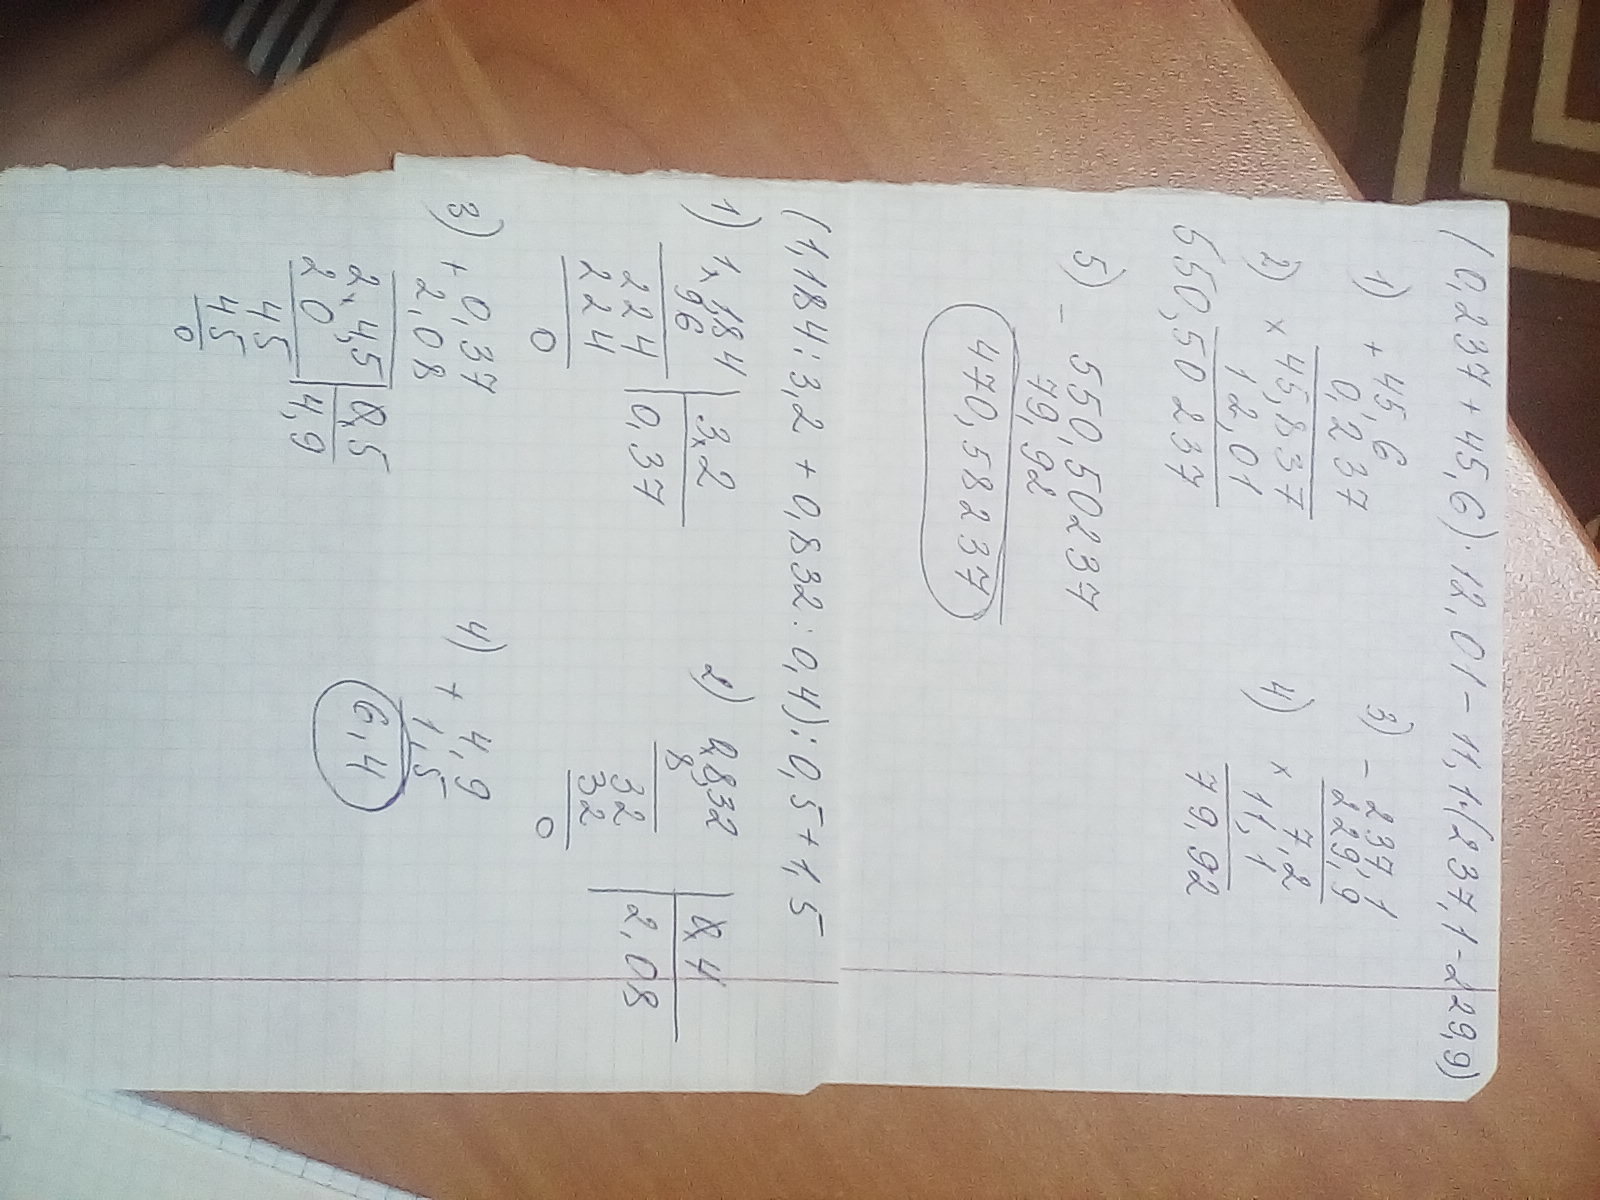 (0,237+45,6)·12,01-11,1·(237,1-229,9)
1) + 45,6
0,237
2) × 45,837
12,01
550,50237
3) - 237,1
229,9
4) × 7,2
11,1
79,92
5) - 550,50237
79,92
470,58237
(1,184:3,2+0,832:0,4):0,5+1,5
1) 1,184 | 3,2
96 0,37
224
224
0
2) 0,832 | 0,4
8 2,08
32
32
0
3) + 0,37
2,08
2,45 | 0,5
20 4,9
45
45
0
4) + 4,9
1,5
6,4